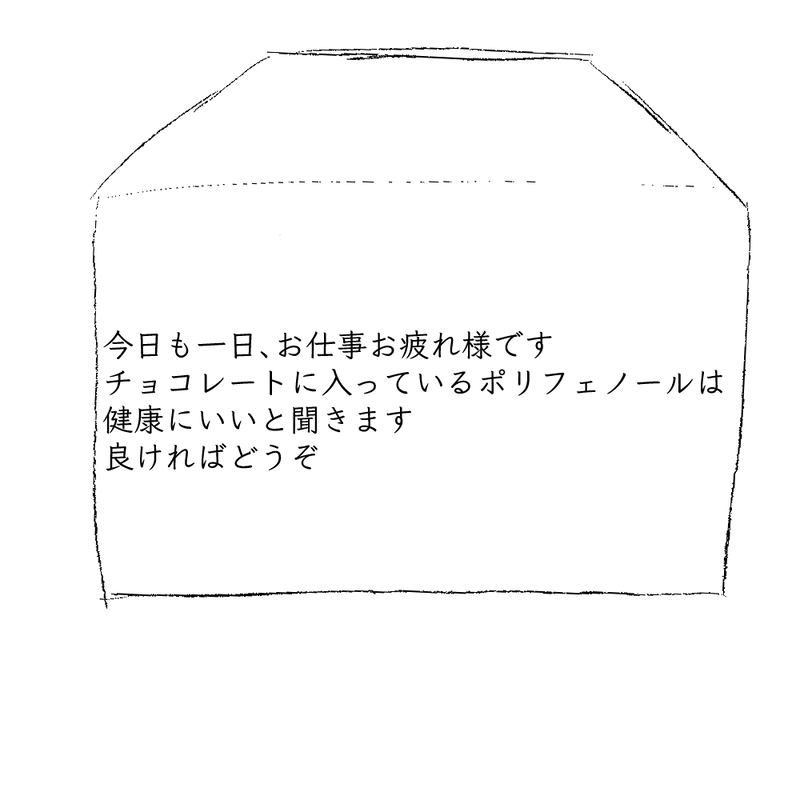 今日も一日、お仕事お疲れ様です
チョコレートに入っているポリフェノールは
健康にいいと聞きます
良ければどうぞ